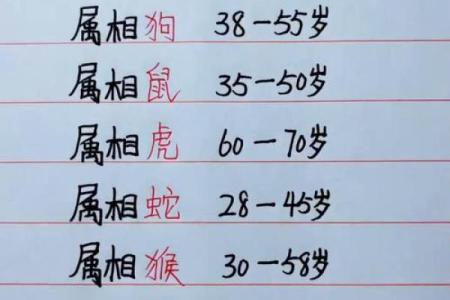 属相狗 38—55岁
属相鼠 35—50岁
属相虎 60—70岁
属相蛇 28—45岁
属相猴 30—58岁